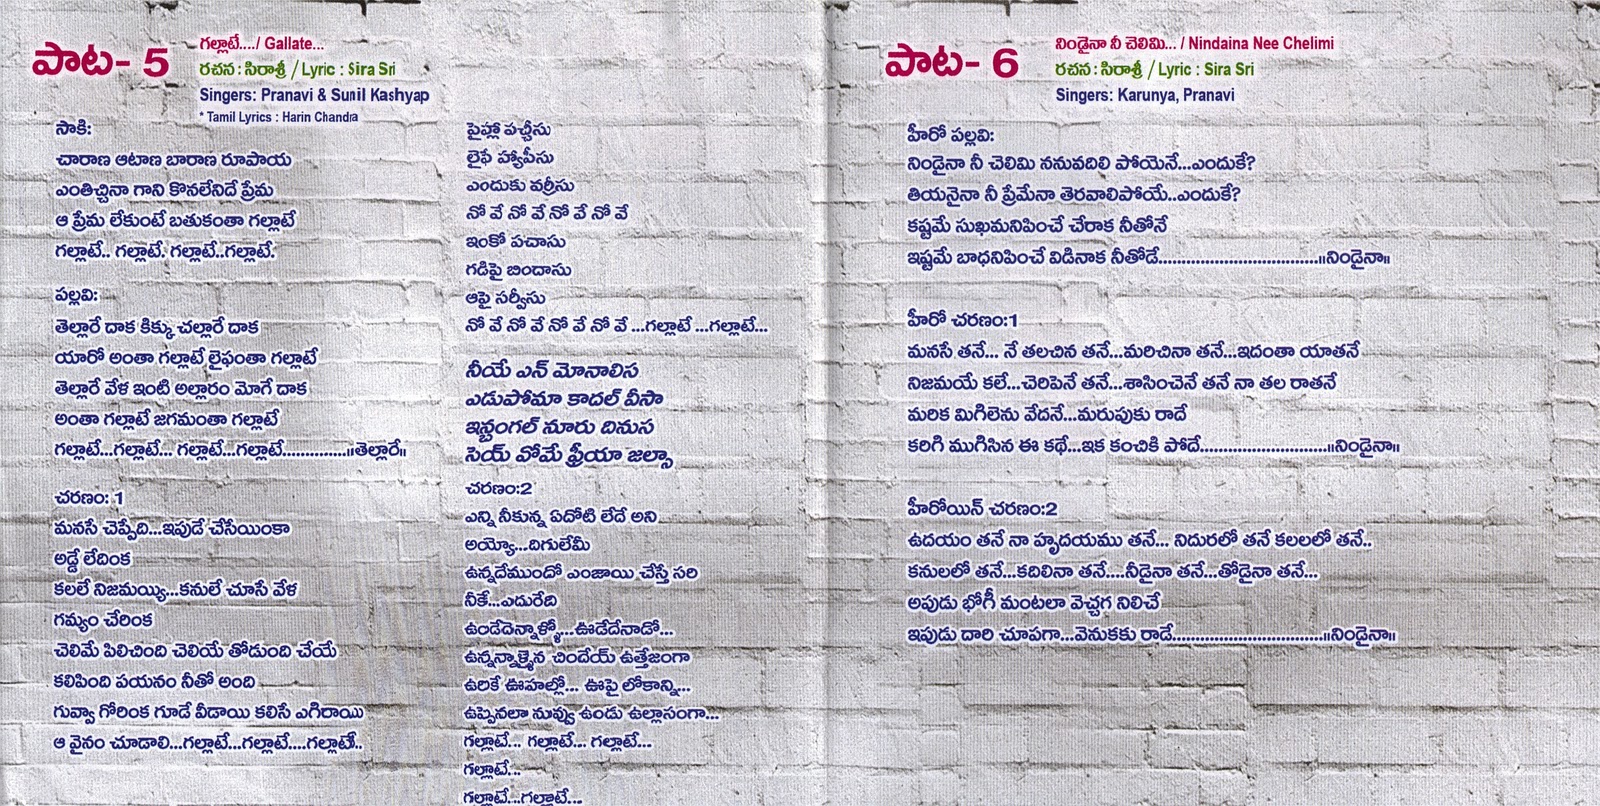 పాట- 5
గల్లాటే..../ Gallate...
రచన : సిరాశ్రీ / Lyric : Sira Sri
Singers: Pranavi & Sunil Kashyap
* Tamil Lyrics : Harin Chandra
సాకి:
చారాణ ఆటాణ బారాణ రూపాయ
ఎంతిచ్చినా గాని కొనలేనిదే ప్రేమ
ఆ ప్రేమ లేకుంటే బతుకంతా గల్లాటే
గల్లాటే.. గల్లాటే. గల్లాటే..గల్లాటే.
పల్లవి:
తెల్లారే దాక కిక్కు చల్లారే దాక
యారో అంతా గల్లాటే లైఫంతా గల్లాటే
తెల్లారే వేళ ఇంటి అల్లారం మోగే దాక
అంతా గల్లాటే జగమంతా గల్లాటే
గల్లాటే...గల్లాటే... గల్లాటే...గల్లాటే..............॥తెల్లారే॥
చరణం: 1
మనసే చెప్పేది...ఇపుడే చేసేయింకా
అడ్డే లేదింక
కలలే నిజమయ్యి...కనులే చూసే వేళ
గమ్యం చేరింక
చెలిమే పిలిచింది చెలియే తోడుంది చేయే
కలిపింది పయనం నీతో అంది
గువ్వా గోరింక గూడే వీడాయి కలిసే ఎగిరాయి
ఆ వైనం చూడాలి...గల్లాటే...గల్లాటే....గల్లాటే..
పైహ్లా పచ్చీసు
లైఫే హ్యాపీసు
ఎందుకు వర్రీసు
నో వే నో వే నో వే నో వే
ఇంకో పచాసు
గడిపై బిందాసు
ఆపై సర్వీసు
నో వే నో వే నో వే నో వే ...గల్లాటే ...గల్లాటే...
నీయే ఎన్ మోనాలిస
ఎడుపోమా కాదల్ వీసా
ఇన్బంగల్ నూరు దినుస
సెయ్ వోమే ఫ్రీయా జల్సా
చరణం:2
ఎన్ని నీకున్న ఏదోటి లేదే అని
అయ్యో...దిగులేమీ
ఉన్నదేముందో ఎంజాయి చేస్తే సరి
నీకే...ఎదురేది
ఉండేదెన్నాళ్ళో...ఊడేదేనాడో...
ఉన్నన్నాళ్ళైన చిందేయ్ ఉత్తేజంగా
ఉరికే ఊహల్లో... ఊపై లోకాన్ని...
ఉప్పెనలా నువ్వు ఉండు ఉల్లాసంగా...
గల్లాటే... గల్లాటే... గల్లాటే...
గల్లాటే...
గల్లాటే...గల్లాటే...
పాట- 6
నిండైనా నీ చెలిమి... / Nindaina Nee Chelimi
రచన : సిరాశ్రీ / Lyric : Sira Sri
Singers: Karunya, Pranavi
హీరో పల్లవి:
నిండైనా నీ చెలిమి ననువదిలి పోయెనే...ఎందుకే?
తియనైనా నీ ప్రేమేనా తెరవాలిపోయే..ఎందుకే?
కష్టమే సుఖమనిపించే చేరాక నీతోనే
ఇష్టమే బాధనిపించే విడినాక నీతోడే....................................॥నిండైనా॥
హీరో చరణం:1
మనసే తనే... నే తలచిన తనే...మరిచినా తనే...ఇదంతా యాతనే
నిజమయే కలే...చెరిపెనే తనే...శాసించెనే తనే నా తల రాతనే
మరిక మిగిలెను వేదనే...మరుపుకు రాదే
కరిగి ముగిసిన ఈ కథే...ఇక కంచికి పోదే.............................॥నిండైనా॥
హీరోయిన్ చరణం:2
ఉదయం తనే నా హృదయము తనే... నిదురలో తనే కలలలో తనే..
కనులలో తనే...కదిలినా తనే....నీడైనా తనే...తోడైనా తనే...
అపుడు భోగీ మంటలా వెచ్చగ నిలిచే
ఇపుడు దారి చూపగా...వెనుకకు రాడే..................................॥నిండైనా॥